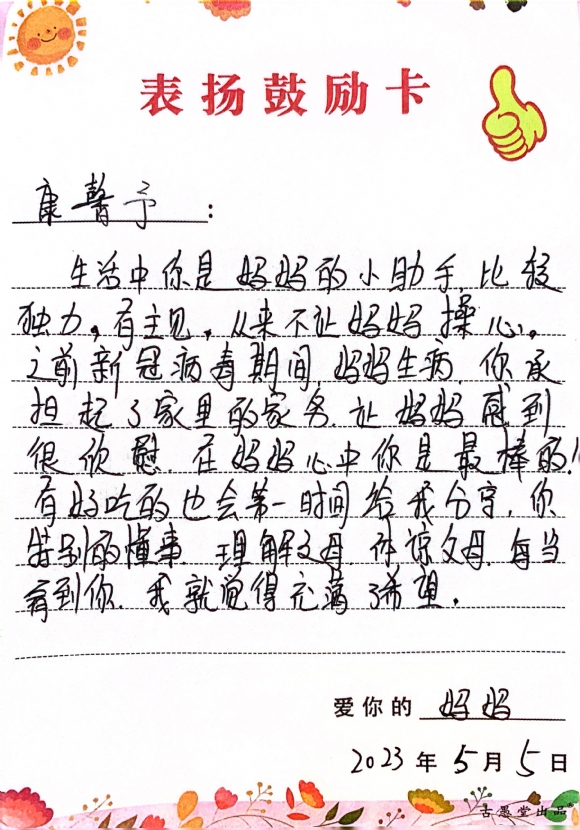 表扬鼓励卡
康馨予：
生活中你是妈妈的小助手,比较
独力，有主见，从来不让妈妈操心。
之前新冠病毒期间妈妈生病,你承
担起了家里的家务,让妈妈感到
很欣慰,在妈妈心中你是最棒的!
有好吃的也会第一时间给我分享,你
特别的懂事,理解父母,体谅父母,每当
看到你,我就觉得充满了希望。
爱你的 妈妈
2023年5月5日
古愚堂出品